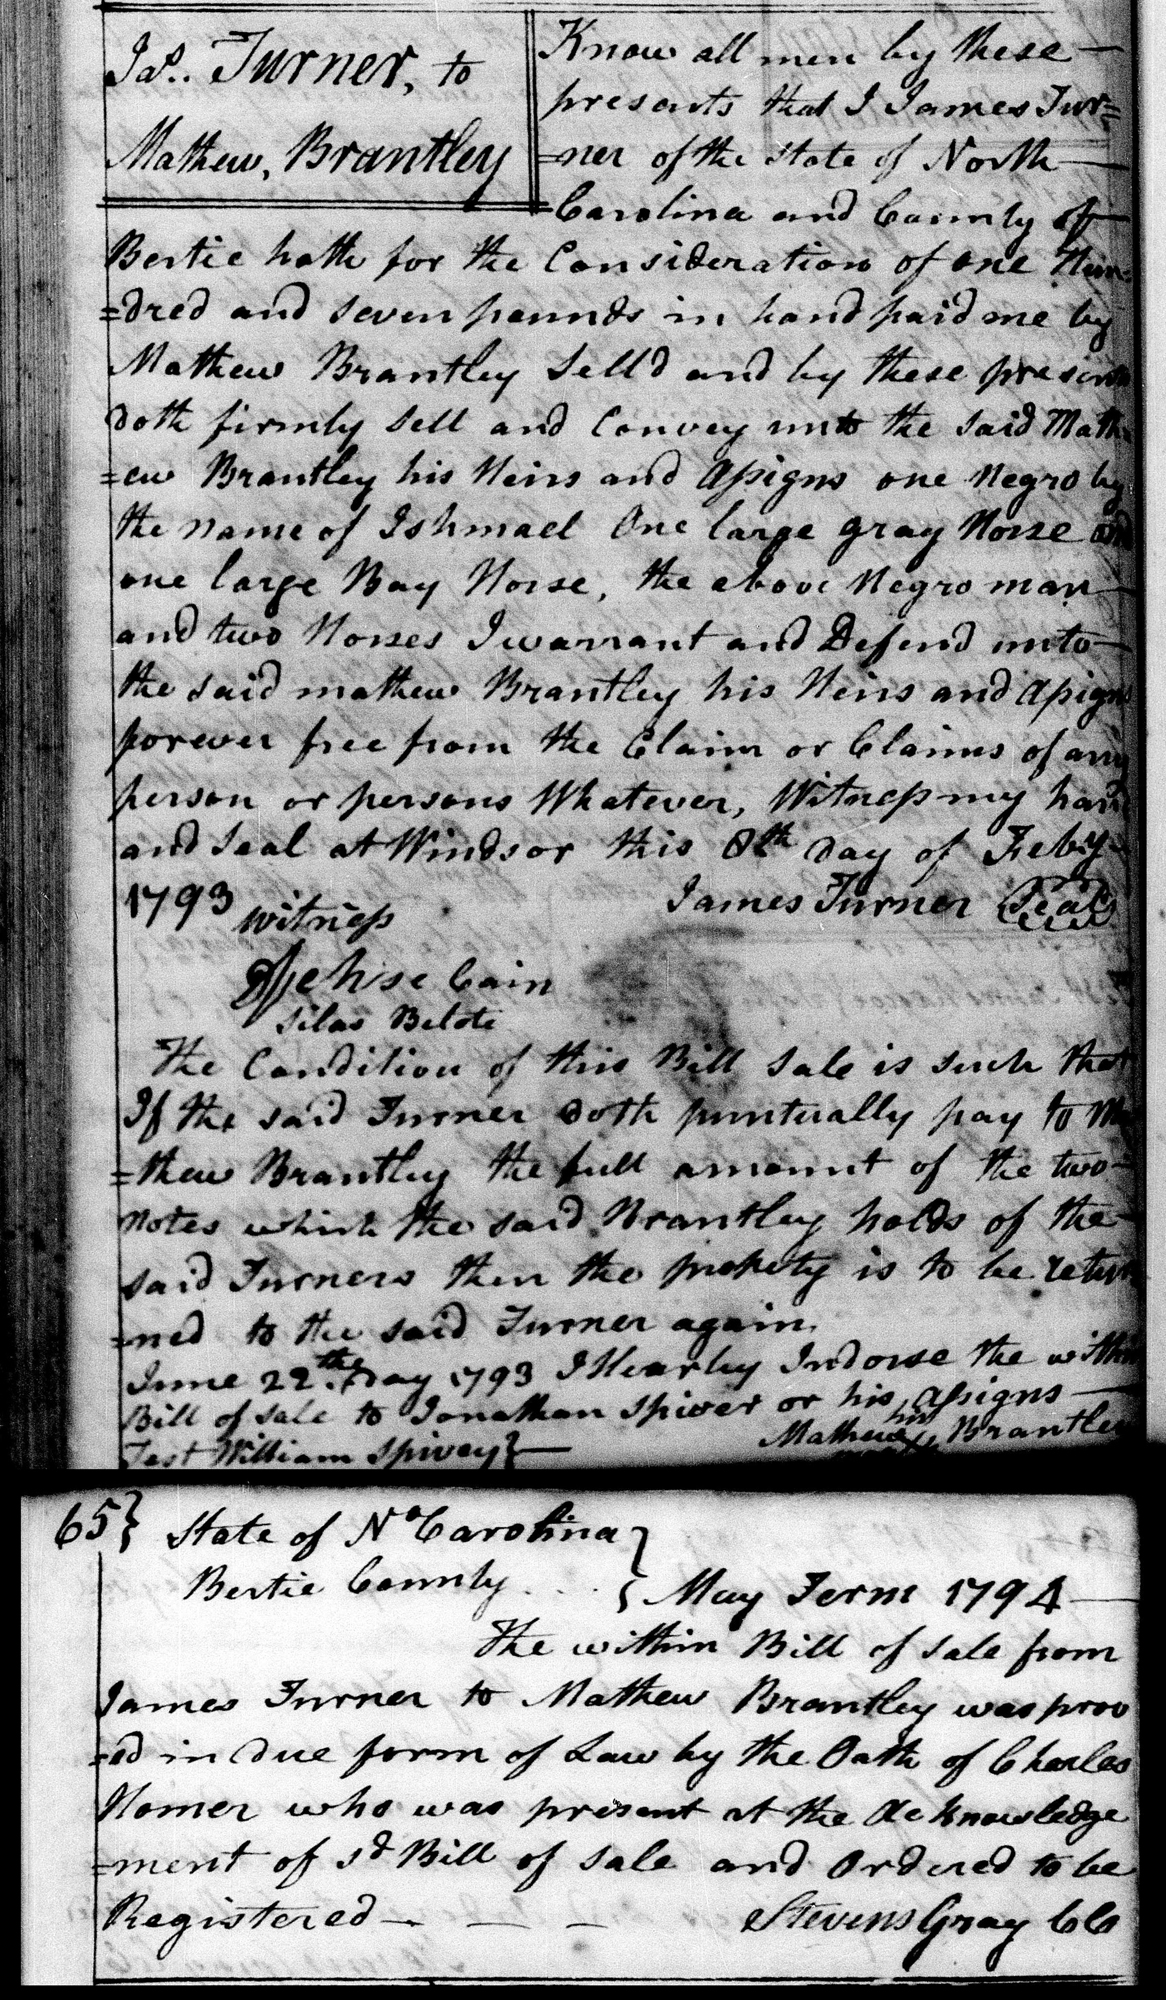 Jas. Turner, to
Mathew, Brantley
Know all men by these
presents that I James Tur=
=ner of the state of North
Carolina and County of
Bertie hath for the Consideration of one Hun=
=dred and seven pounds in hand paid me by
Mathew Brantley Selld and by these presents
doth firmly sell and Convey unto the said Math=
=ew Brantley his Heirs and Assigns one Negro by
the name of Ishmael One large gray Horse and
one large Bay Horse, the above Negro man
and two Horses I warrant and Defend unto
the said mathew Brantley his Heirs and Assigns
forever free from the Claim or Claims of any
person or persons Whatever, Witness my hand
and Seal at Windsor this 8th Day of Feby
1793 witness James Turner Seal
Cain
Silas Belote
The Condition of this Bill Sale is such that
If the said Turner doth puntually pay to Ma
=thew Brantley the full amount of the two
notes which the said Brantley holds of the
said Turners then the property is to be retur
=ned to the said Turner again.
June 22th Day 1793 I Hearby Indorse the within
Bill of Sale to Jonathan Spivey or his Assigns
Test William Spivey} Mathew his x Brantley
65} State of No Carolina}
Bertie County { May Term 1794
The within Bill of Sale from
James Turner to Mathew Brantley was prov
=ed in due form of Law by the Oath of Charles
Homer who was present at the Acknowledge
=ment of sd Bill of Sale and Ordered to be
Registered - - - Stevens Gray CC